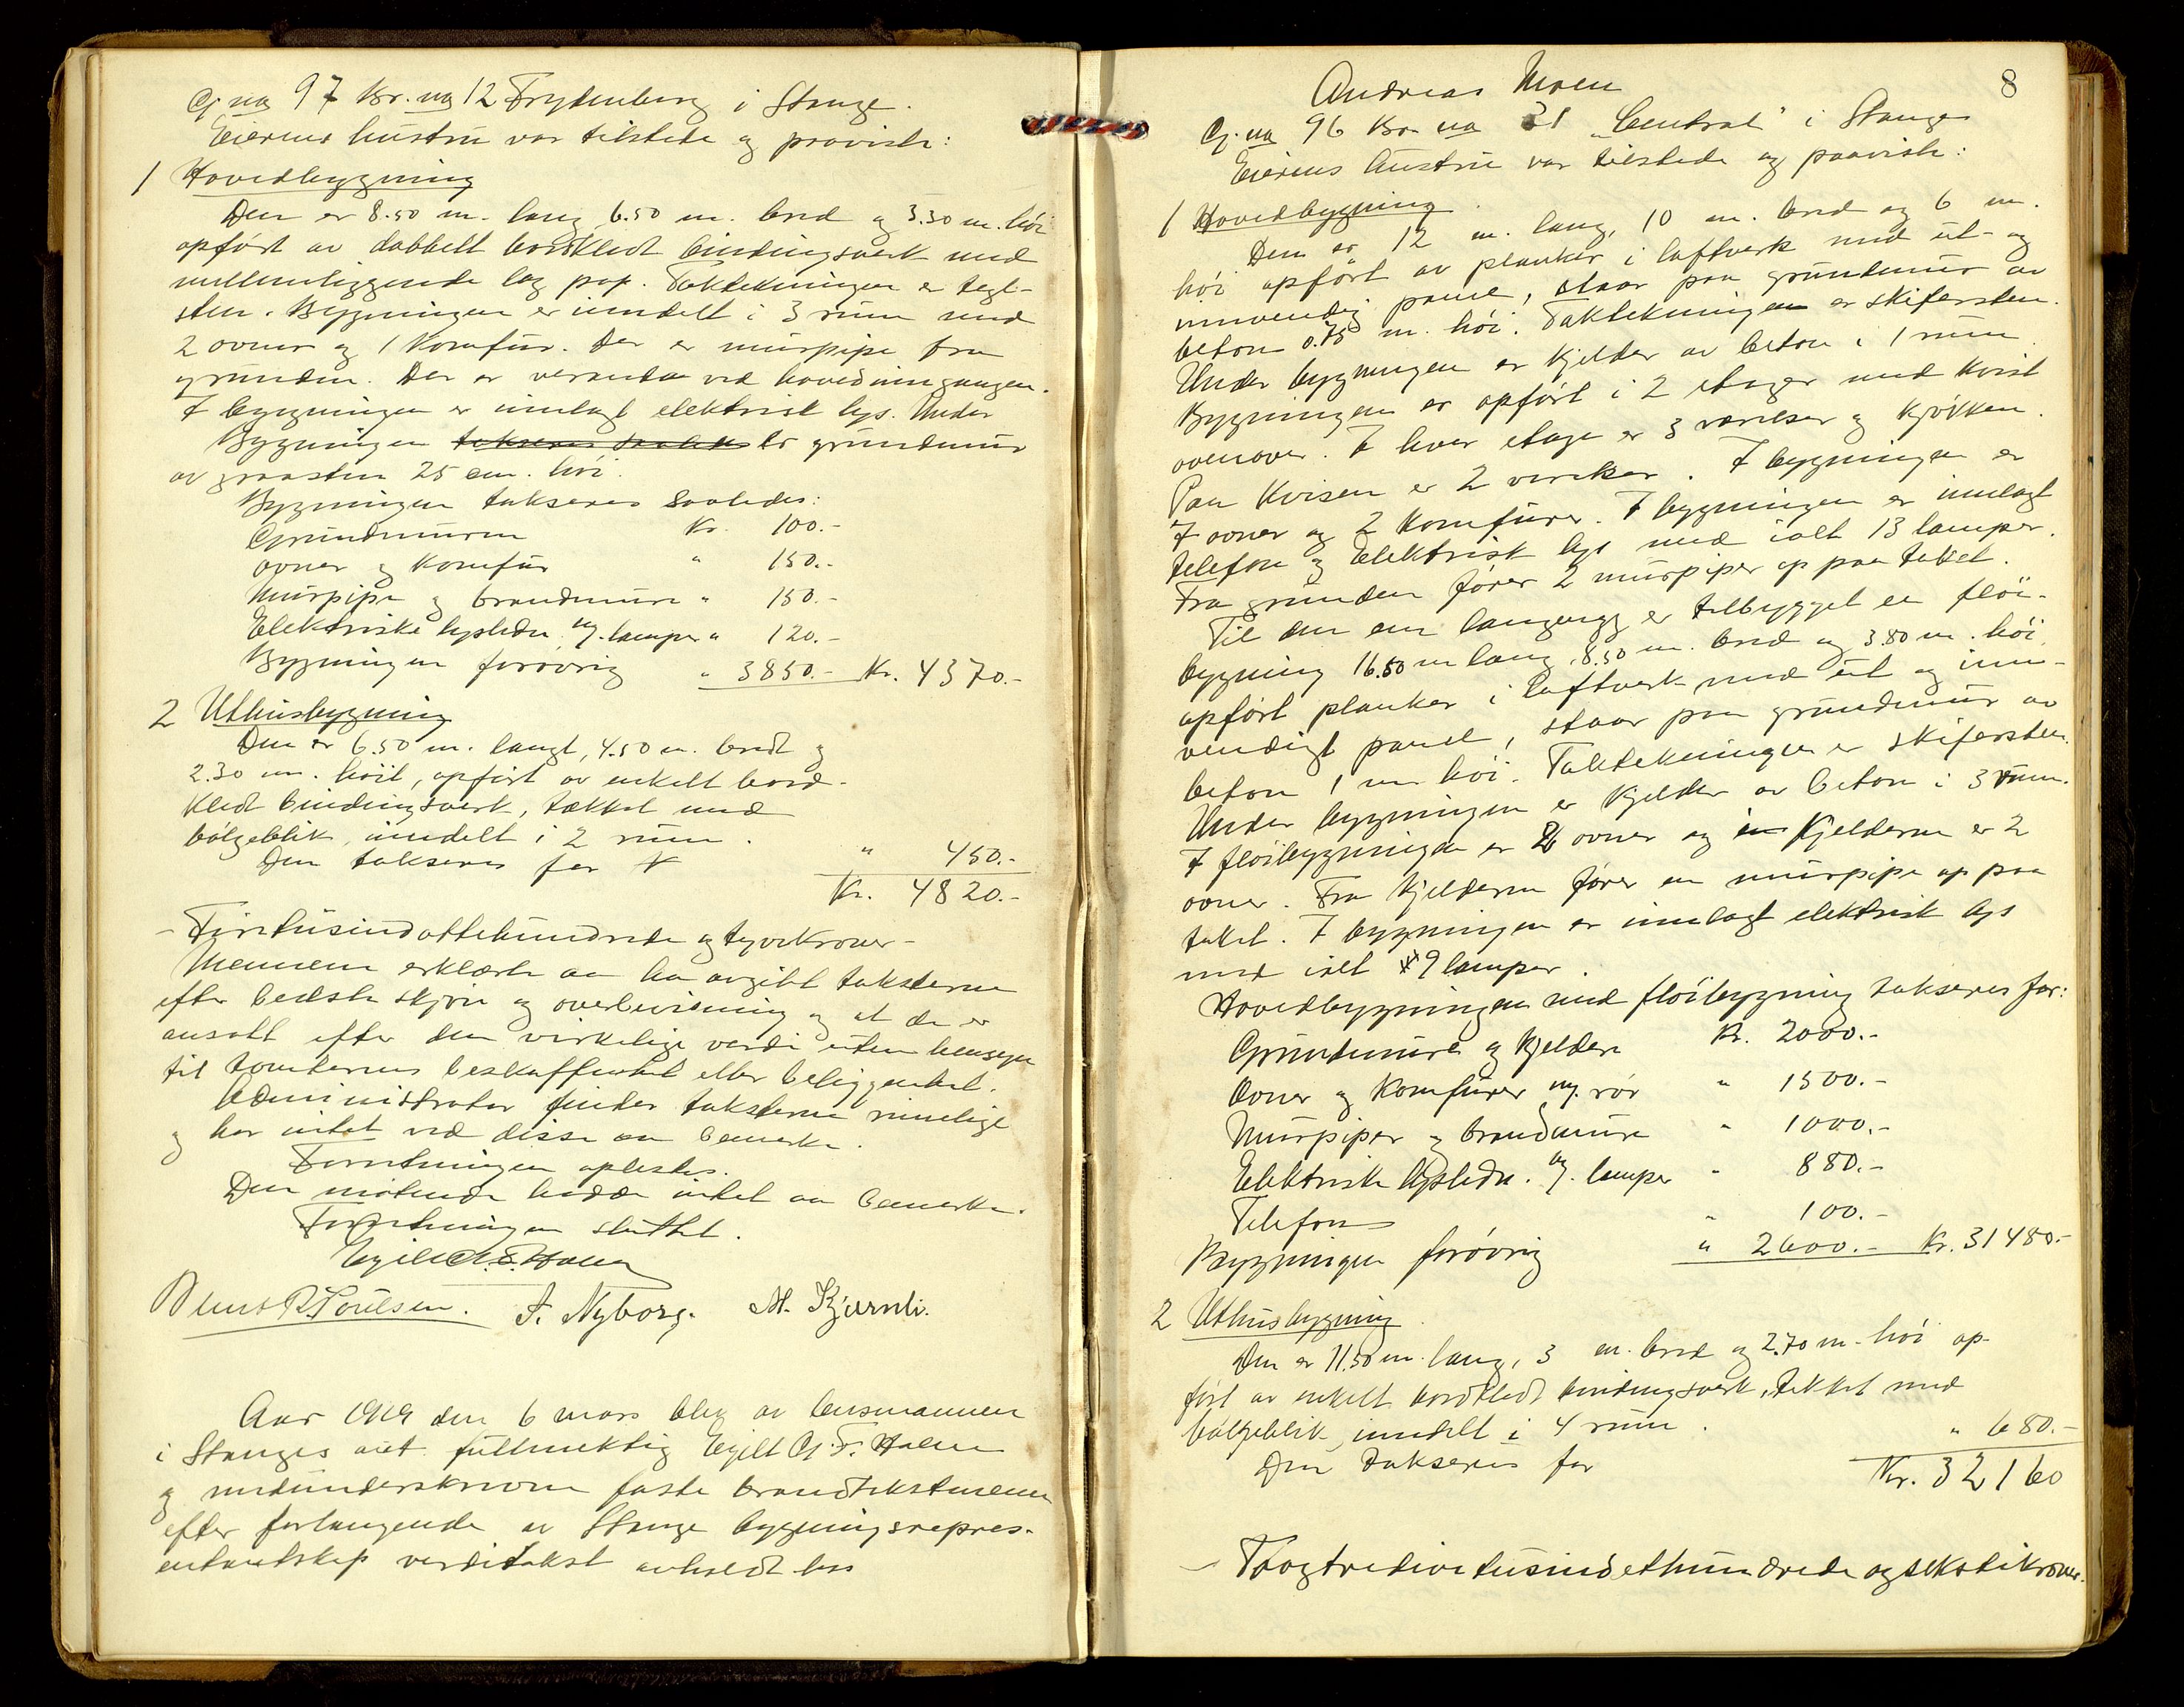 G. no 97 Br. no 12 Frydenberg i Stange.
Eierens hustru var tilstede og paaviste:
1 Hovedbygning
Den er 8.50 m. lang 6.50 m. bred og 3.30 m. høi
opført av dobbelt bordklædt bindingsverk med
mellemliggende lag pap. Taktekningen er tegl-
sten. Bygningen er inndelt i 3 rum med
2 ovner og 1 komfur. Der er murpipe fra
grunden. Der er veranda ved hovedinngangen.
I bygningen er innlagt elektrisk lys. Under
Bygningen er grundmur
av graasten 25 cm. høi.
Bygningen takseres saaledes:
Grundmuren Kr. 100.-
ovner og komfur " 150.-
Murpipe og brandmure " 150.-
Elektriske lysledn. og lamper " 120.-
Bygningen forøvrig " 3850.- Kr. 4370.-
2 Uthusbygning
Den er 6.50 m. langt, 4.50 m. bredt og
2.30 m. høit, opført av enkelt bord-
klædt bindingsverk, tækket med
bølgeblik, inndelt i 2 rum.
Den takseres for " 450.-
Kr. 4820.-
- Firetusindottehundrede og tyvekroner -
Mennene erklærte aa ha avgitt taksterne
efter bedste skjøn og overbevisning og at de er
ansatt efter den virkelige verdi uten hensyn
til tomternes beskaffenhet eller beliggenhet.
Administrator finder taksterne rimelige
og har intet ved disse aa bemerke.
Forretningen oplestes.
Den møtende hadde intet aa bemerke.
Forretningen sluttet.
Egil G. F. Holm
Bernt R. Poulsen. F. Nyborg. M. Kjernli.
Aar 1919 den 6 mars blev av lensmannen
i Stanges aut. fullmektig Egil G. F. Holm
og medunderskrevne faste brandtakstmenn
efter forlangende av Stange bygningsrepres-
entantskap verditakst avholdt hos
8
Andreas Moen
G. no 96 Br. no 31 "Central" i Stange
Eierens hustru var tilstede og paaviste:
1 Hovedbygning.
Den er 12 m. lang, 10 m. bred og 6 m.
høi opført av planker i laftverk med ut- og
innvendig panel, staar paa grundmur av
beton 0.75 m. høi. Taktekningen er skifersten.
Under bygningen er kjelder av beton i 1 rum.
Bygningen er opført i 2 etager med kvist
ovenover. I hver etage er 3 værelser og kjøkken.
Paa kvisten er 2 værelser. I bygningen er
7 ovner og 2 komfurer. I bygningen er innlagt
telefon og elektrisk lys med ialt 13 lamper.
Fra grunden fører 2 murpiper op paa taket.
Til den ene langvegg er tilbygget en fløi-
bygning 16.50 m lang, 8.50 m. bred og 3.80 m. høi
opført planker i laftverk med ut og inn-
vendigt panel, staar paa grundmur av
beton 1 m høi. Taktekningen er skifersten.
Under bygningen er kjelder av beton i 3 rum.
I fløibygningen er 6 ovner og i kjelderne er 2
ovner. Fra kjelderne fører en murpipe op paa
taket. I bygningen er innlagt elektrisk lys
med ialt 9 lamper.
Hovedbygningen med fløibygning takseres for:
Grundmure og kjeldere Kr. 2000.-
Ovner og komfurer m. rør " 1500.-
Murpiper og brandmure " 1000.-
Elektriske lysledn. og lamper " 880.-
Telefon " 100.-
Bygningen forøvrig " 2600.- Kr. 31480.-
2 Uthusbygning.
Den er 11.50 m. lang, 3 m. bred og 2.70 m. høi op-
ført av enkelt bordklædt bindingsverk, tekket med
bølgeblik, inndelt i 4 rum.
Den takseres for " 680.-
Kr. 32160
- Toogtredivetusindethundrede og sekstikroner.